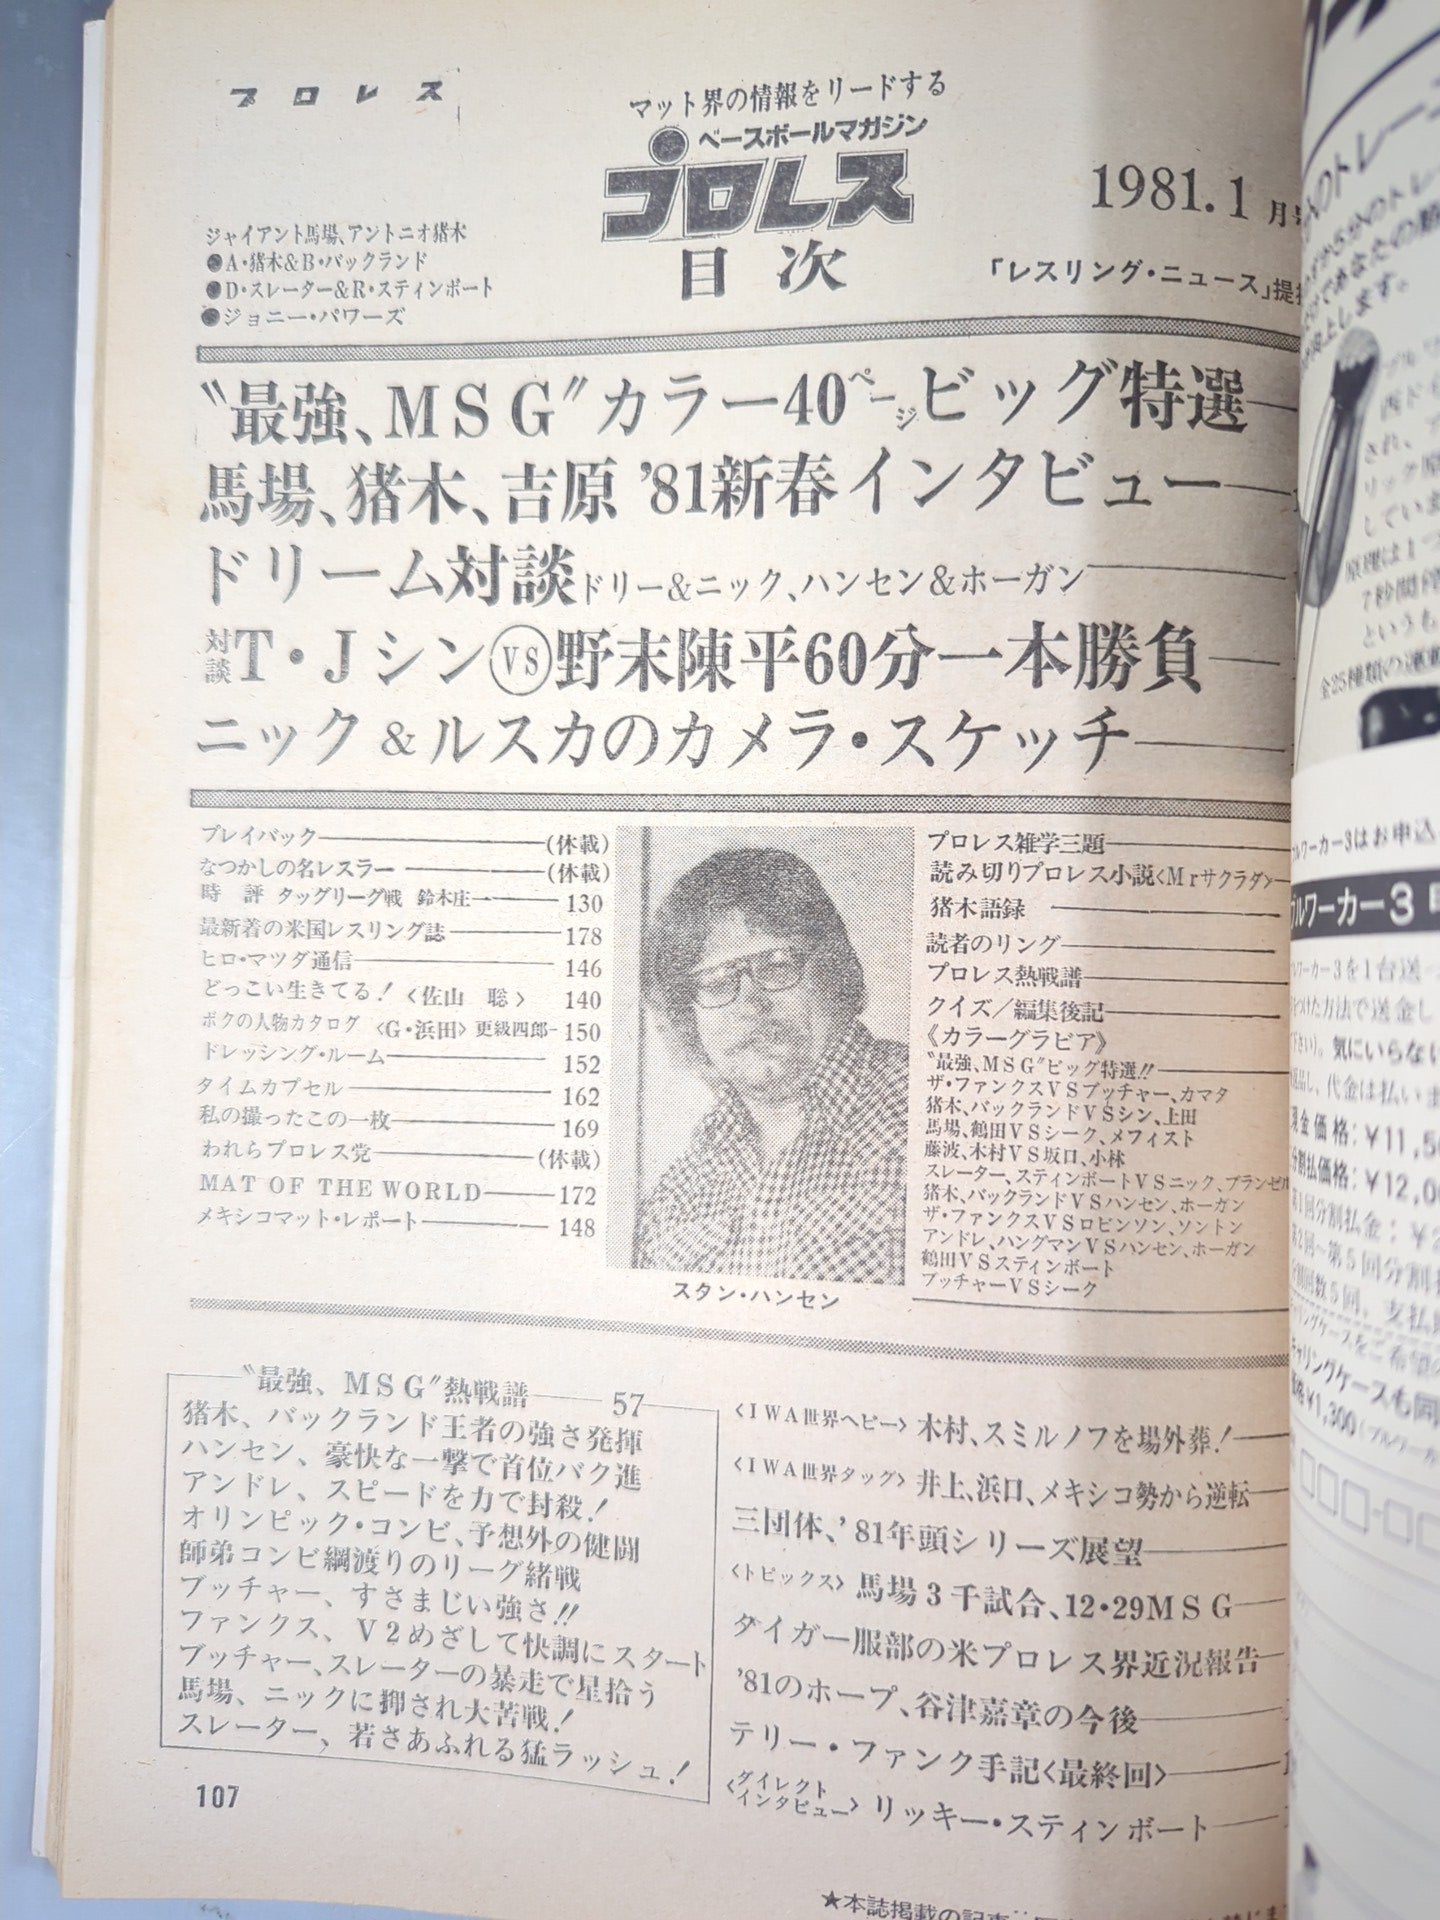 プロレス
マット界の情報をリードする
ベースボールマガジン
プロレス
目次
1981.1月
「レスリング・ニュース」提
ジャイアント馬場、アントニオ猪木
●A・猪木&B・バックランド
●D・スレーター&R・スティンボート
●ジョニー・パワーズ
〝最強、MSG〟カラー40ページビッグ特選
馬場、猪木、吉原'81新春インタビュー
ドリーム対談ドリー&ニック、ハンセン&ホーガン
対談T・JシンVS野末陳平60分一本勝負
ニック&ルスカのカメラ・スケッチ
プレイバック――(休載)
なつかしの名レスラー――(休載)
時評 タッグリーグ戦 鈴木庄一――130
最新着の米国レスリング誌――178
ヒロ・マツダ通信――146
どっこい生きてる!〈佐山 聡〉 140
ボクの人物カタログ〈G・浜田〉更級四郎―150
ドレッシング・ルーム――152
タイムカプセル――162
私の撮ったこの一枚――169
われらプロレス党――(休載)
MAT OF THE WORLD――172
メキシコマット・レポート――148
スタン・ハンセン
プロレス雑学三題――
読み切りプロレス小説〈Mrサクラダ〉―
猪木語録――
読者のリング――
プロレス熱戦譜――
クイズ/編集後記――
《カラーグラビア》
〝最強、MSG〟ビッグ特選!!
ザ・ファンクスVSブッチャー、カマタ
猪木、バックランドVSシン、上田
馬場、鶴田VSシーク、メフィスト
藤波、木村VS坂口、小林
スレーター、スティンボートVSニック、ブランゼル
猪木、バックランドVSハンセン、ホーガン
ザ・ファンクスVSロビンソン、ソントン
アンドレ、ハングマンVSハンセン、ホーガン
鶴田VSスティンボート
ブッチャーVSシーク
〝最強、MSG〟熱戦譜――57
猪木、バックランド王者の強さ発揮
ハンセン、豪快な一撃で首位バク進
アンドレ、スピードを力で封殺!
オリンピック・コンビ、予想外の健闘
師弟コンビ綱渡りのリーグ緒戦
ブッチャー、すさまじい強さ!!
ファンクス、V2めざして快調にスタート
ブッチャー、スレーターの暴走で星拾う
馬場、ニックに抑され大苦戦!
スレーター、若さあふれる猛ラッシュ!
〈IWA世界ヘビー〉木村、スミルノフを場外葬!―
〈IWA世界タッグ〉井上、浜口、メキシコ勢から逆転―
三団体、'81年頭シリーズ展望――
〈トピックス〉馬場3千試合、12・29MSG―
タイガー服部の米プロレス界近況報告―
'81のホープ、谷津嘉章の今後――
テリー・ファンク手記〈最終回〉――
〈ダイレクトインタビュー〉リッキー・スティンボート―
107
★本誌掲載の記事
のトレーニ
ブルワーカー3はお申込
ブルワーカー3
ルワーカー3を1台送
をつけた方法で送金し
気にいらない
返品し、代金は払いま
現金価格:¥11,5
分割払価格:¥12,0
第1回分割払金:¥2
第2回～第5回分割
分割回数5回、支払
ャリングケースも同
¥1,300(ブルワーカ
され、
リック原
していま
原理は1つ
7秒間
というも
全25種類の運動